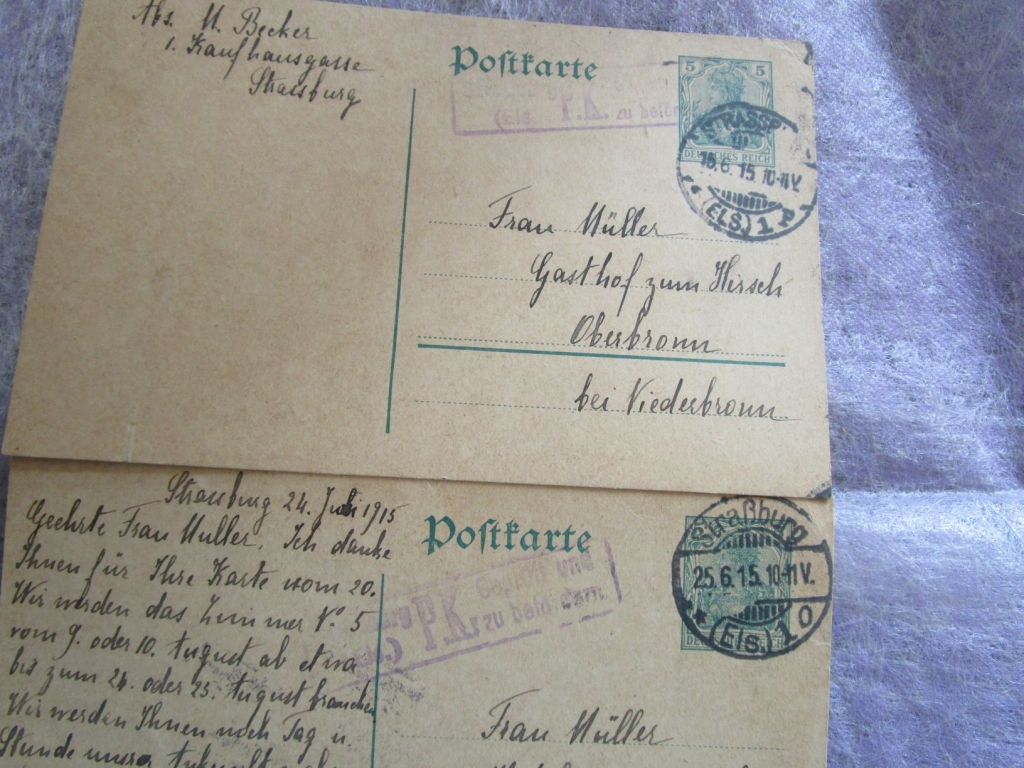 Abs. M. Becker
1. Kaufhausgasse
Strassburg
Postkarte
5 5
DEUTSCHES REICH
P.K. zu
STRASSB
16.6.15 10-11V.
(ELS.) 1
Frau Müller
Gasthof zum Hirsch
Oberbronn
bei Niederbronn
Strassburg 24. Juni 1915
Geehrte Frau Muller. Ich danke
Ihnen für Ihre Karte vom 20.
Wir werden das Zimmer No. 5
vom 9. oder 10. August ab etwa
bis zum 24. oder 25. August brauchen
Wir werden Ihnen noch Tag u.
Stunde unsrer Ankunft
Postkarte
Geprüft und
P.K. zu befördern.
Straßburg
25.6.15.10-11V.
(Els.) 1 o
Frau Müller